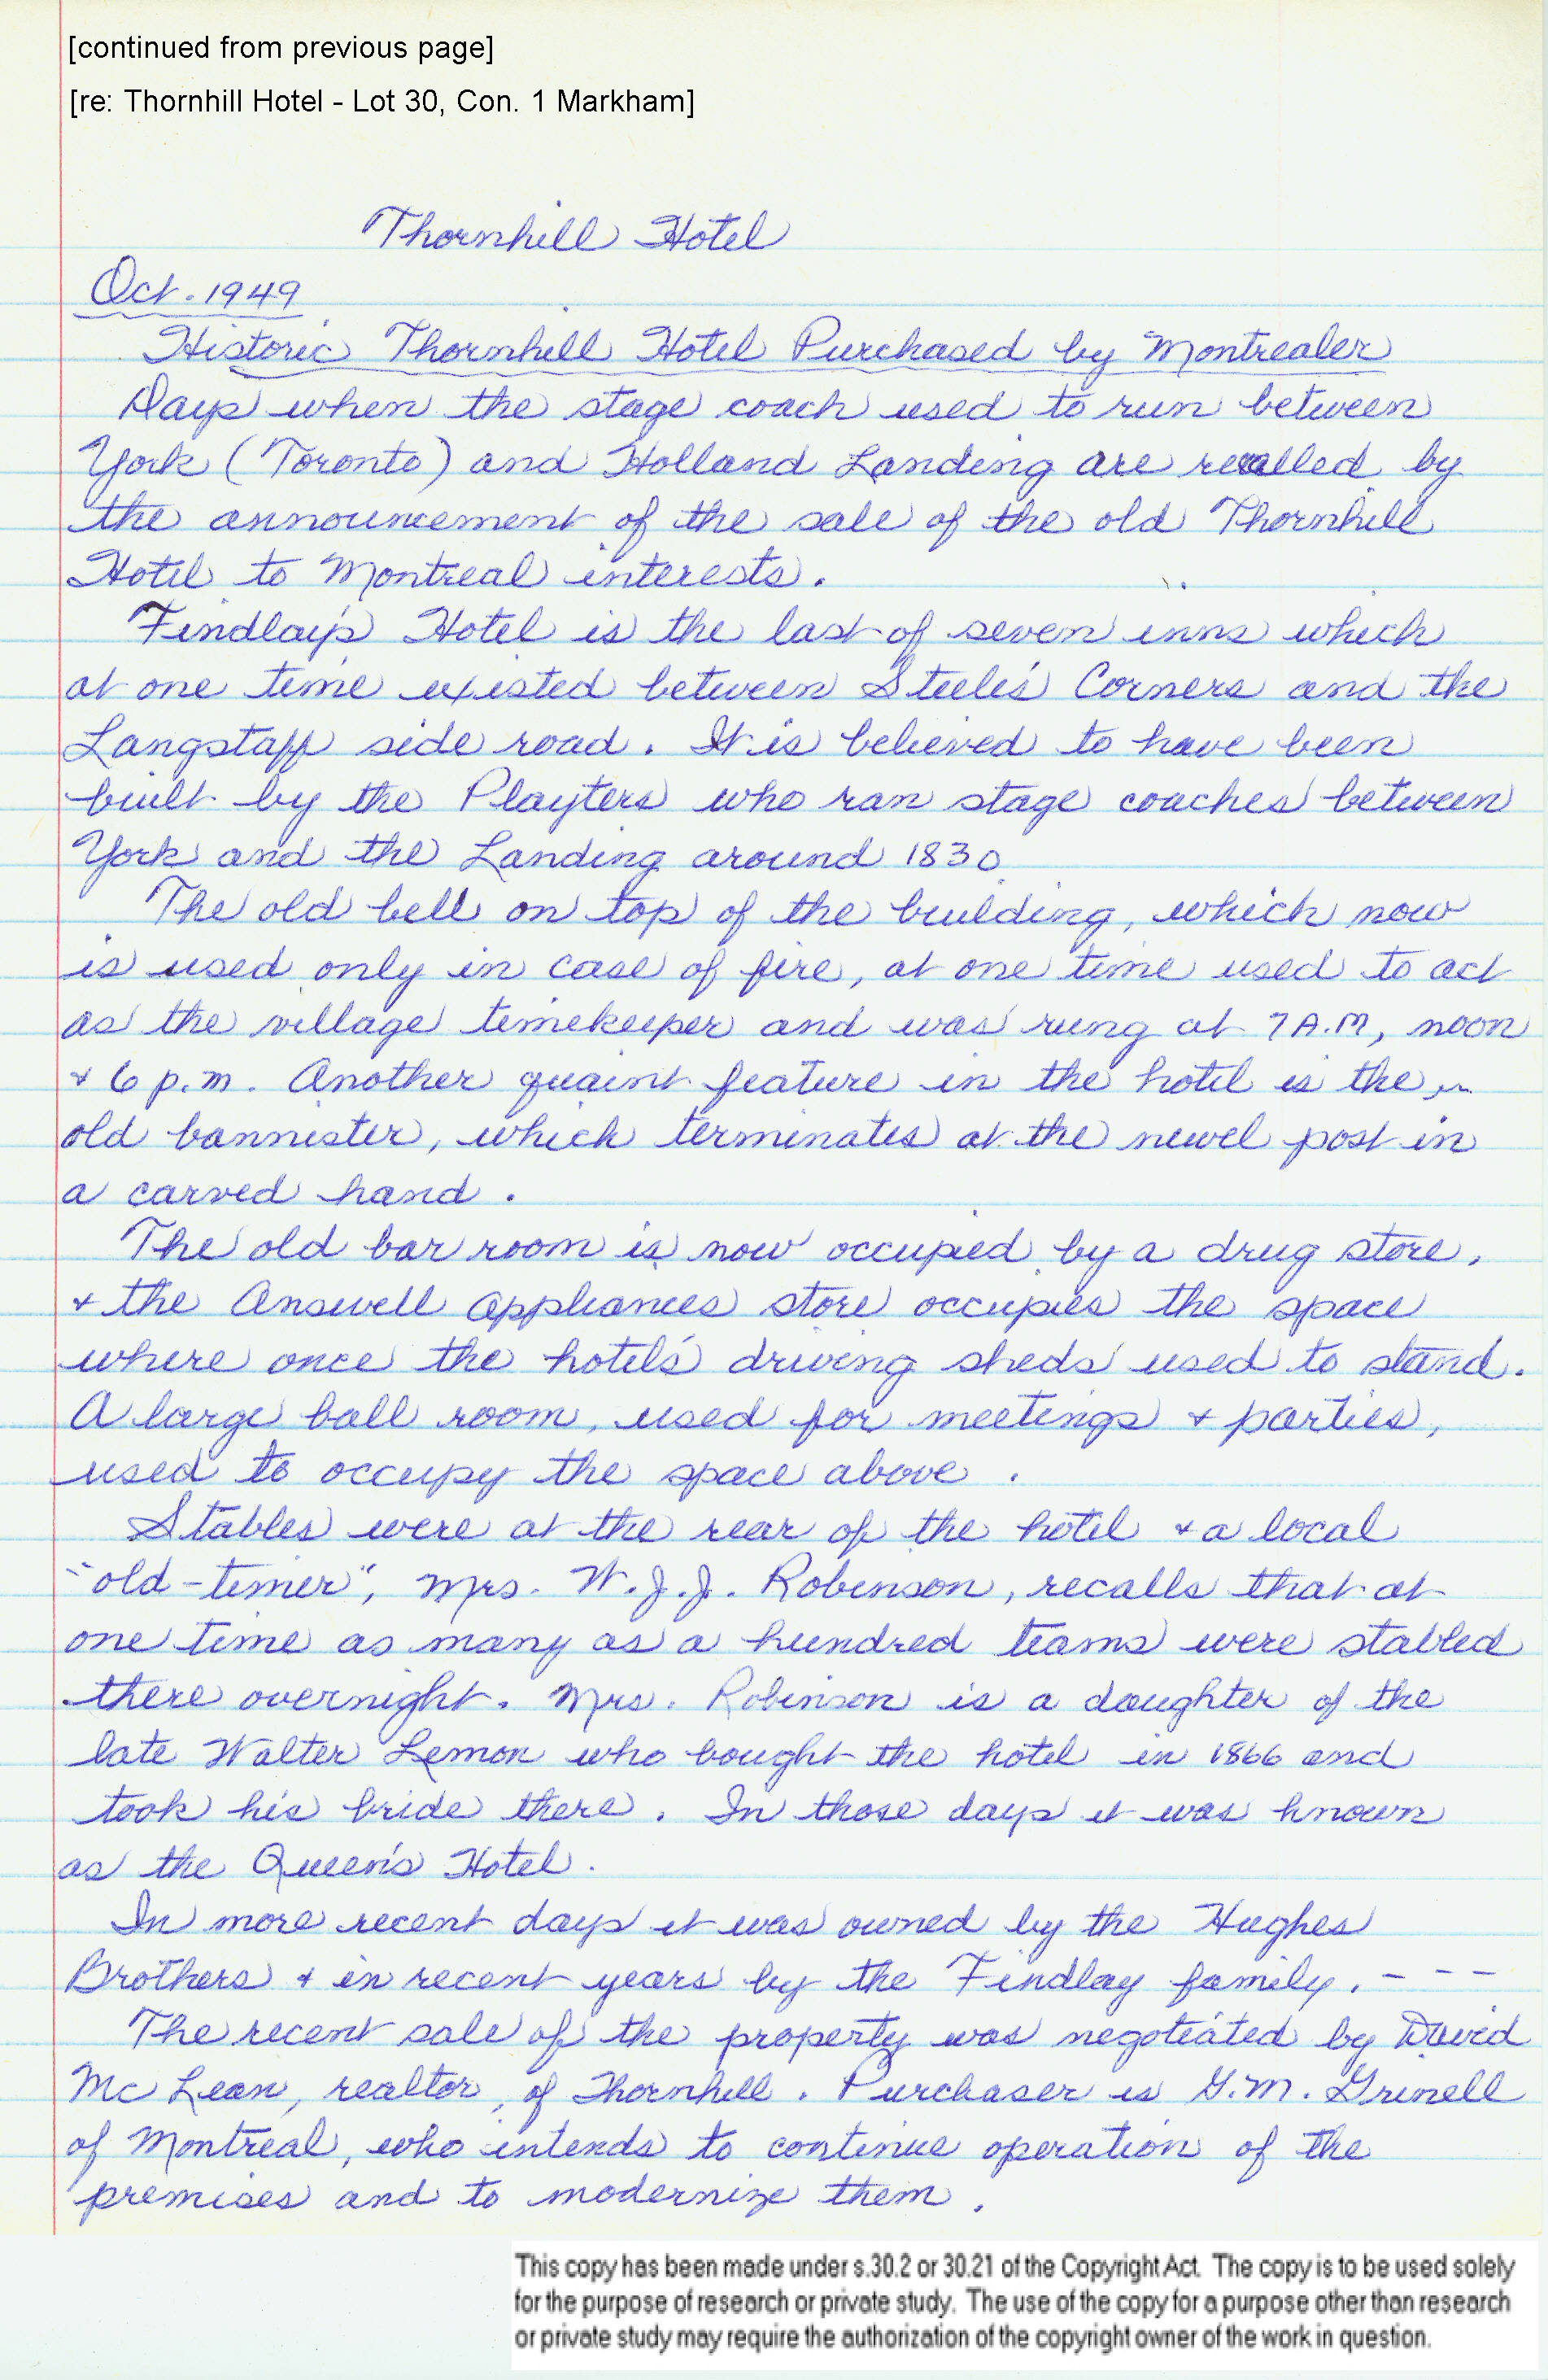 [continued from previous page]
[re: Thornhill Hotel - Lot 30, Con. 1 Markham]
Thornhill Hotel
Oct. 1949
Historic Thornhill Hotel Purchased by Montrealer
Days when the stage coach used to run between
York (Toronto) and Holland Landing are recalled by
the announcement of the sale of the old Thornhill
Hotel to Montreal interests.
Findlay's Hotel is the last of seven inns which
at one time existed between Steele's Corners and the
Langstaff side road. It is believed to have been
built by the Playters who ran stage coaches between
York and the Landing around 1830.
The old bell on top of the building, which now
is used only in case of fire, at one time used to act
as the village timekeeper and was rung at 7 A.M, noon
+ 6 p.m. Another quaint feature in the hotel is the
old bannister, which terminates at the newel post in
a carved hand.
The old bar room is now occupied by a drug store,
+ the Answell Appliances store occupies the space
where once the hotel's driving sheds used to stand.
A large ball room, used for meetings + parties,
used to occupy the space above.
Stables were at the rear of the hotel + a local
"old-timer", Mrs. W.J.J. Robinson, recalls that at
one time as many as a hundred teams were stabled
there overnight. Mrs. Robinson is a daughter of the
late Walter Lemon who bought the hotel in 1866 and
took his bride there. In those days it was known
as the Queen's Hotel.
In more recent days it was owned by the Hughes
Brothers + in recent years by the Findlay family. - - -
The recent sale of the property was negotiated by David
McLean, realtor, of Thornhill. Purchaser is G.M. Grinell
of Montreal, who intends to continue operation of the
premises and to modernize them.
This copy has been made under s.30.2 or 30.21 of the Copyright Act. The copy is to be used solely
for the purpose of research or private study. The use of the copy for a purpose other than research
or private study may require the authorization of the copyright owner of the work in question.